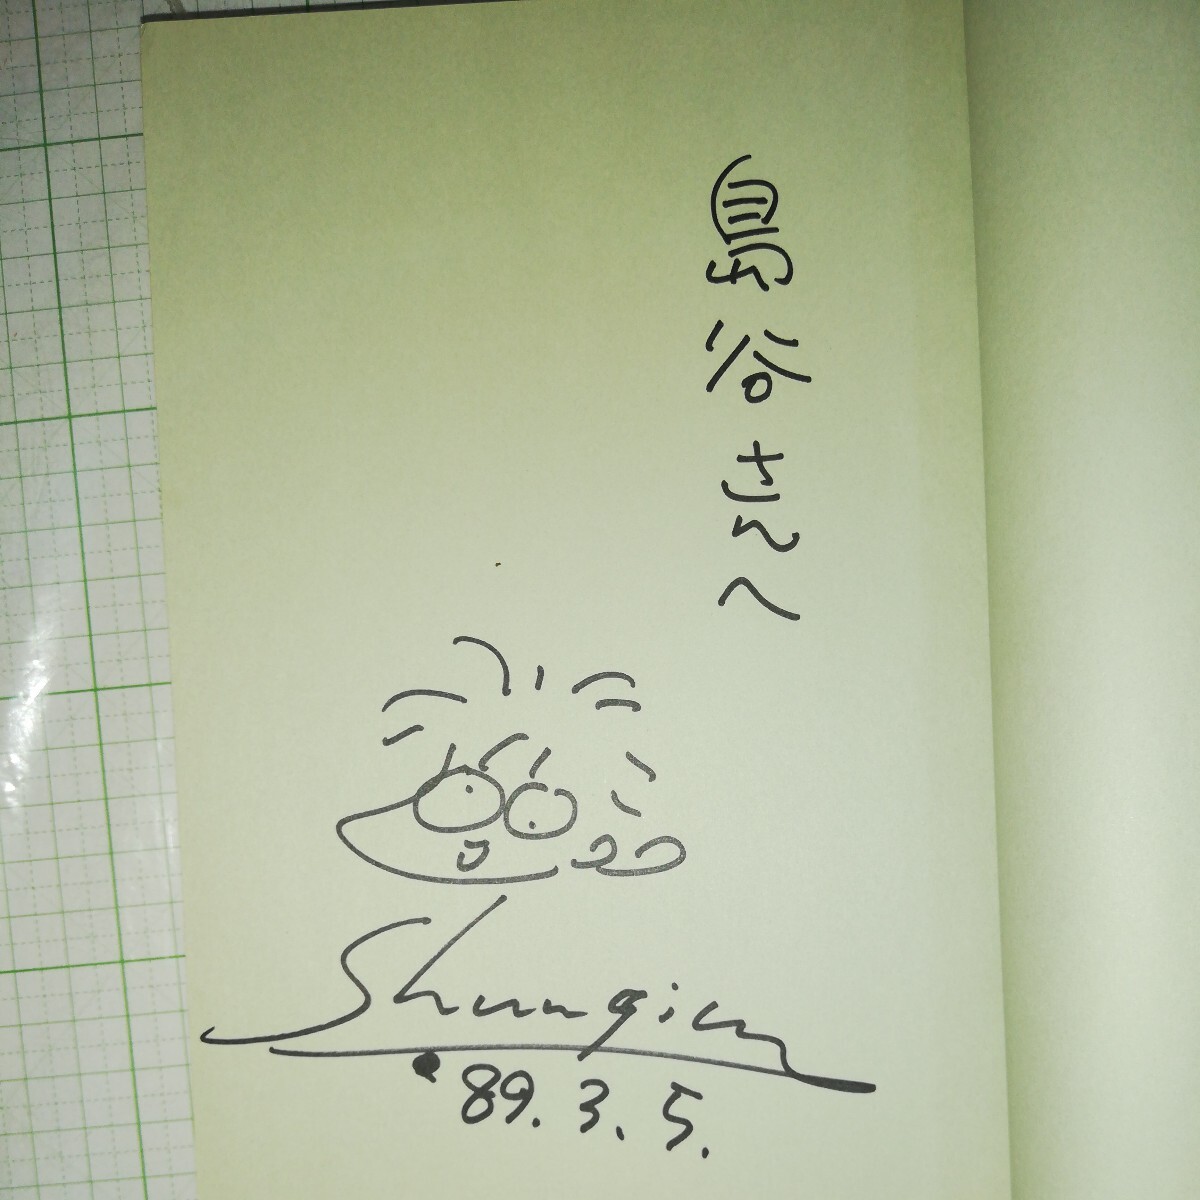 島谷さんへ
Shungicu
'89.3.5.